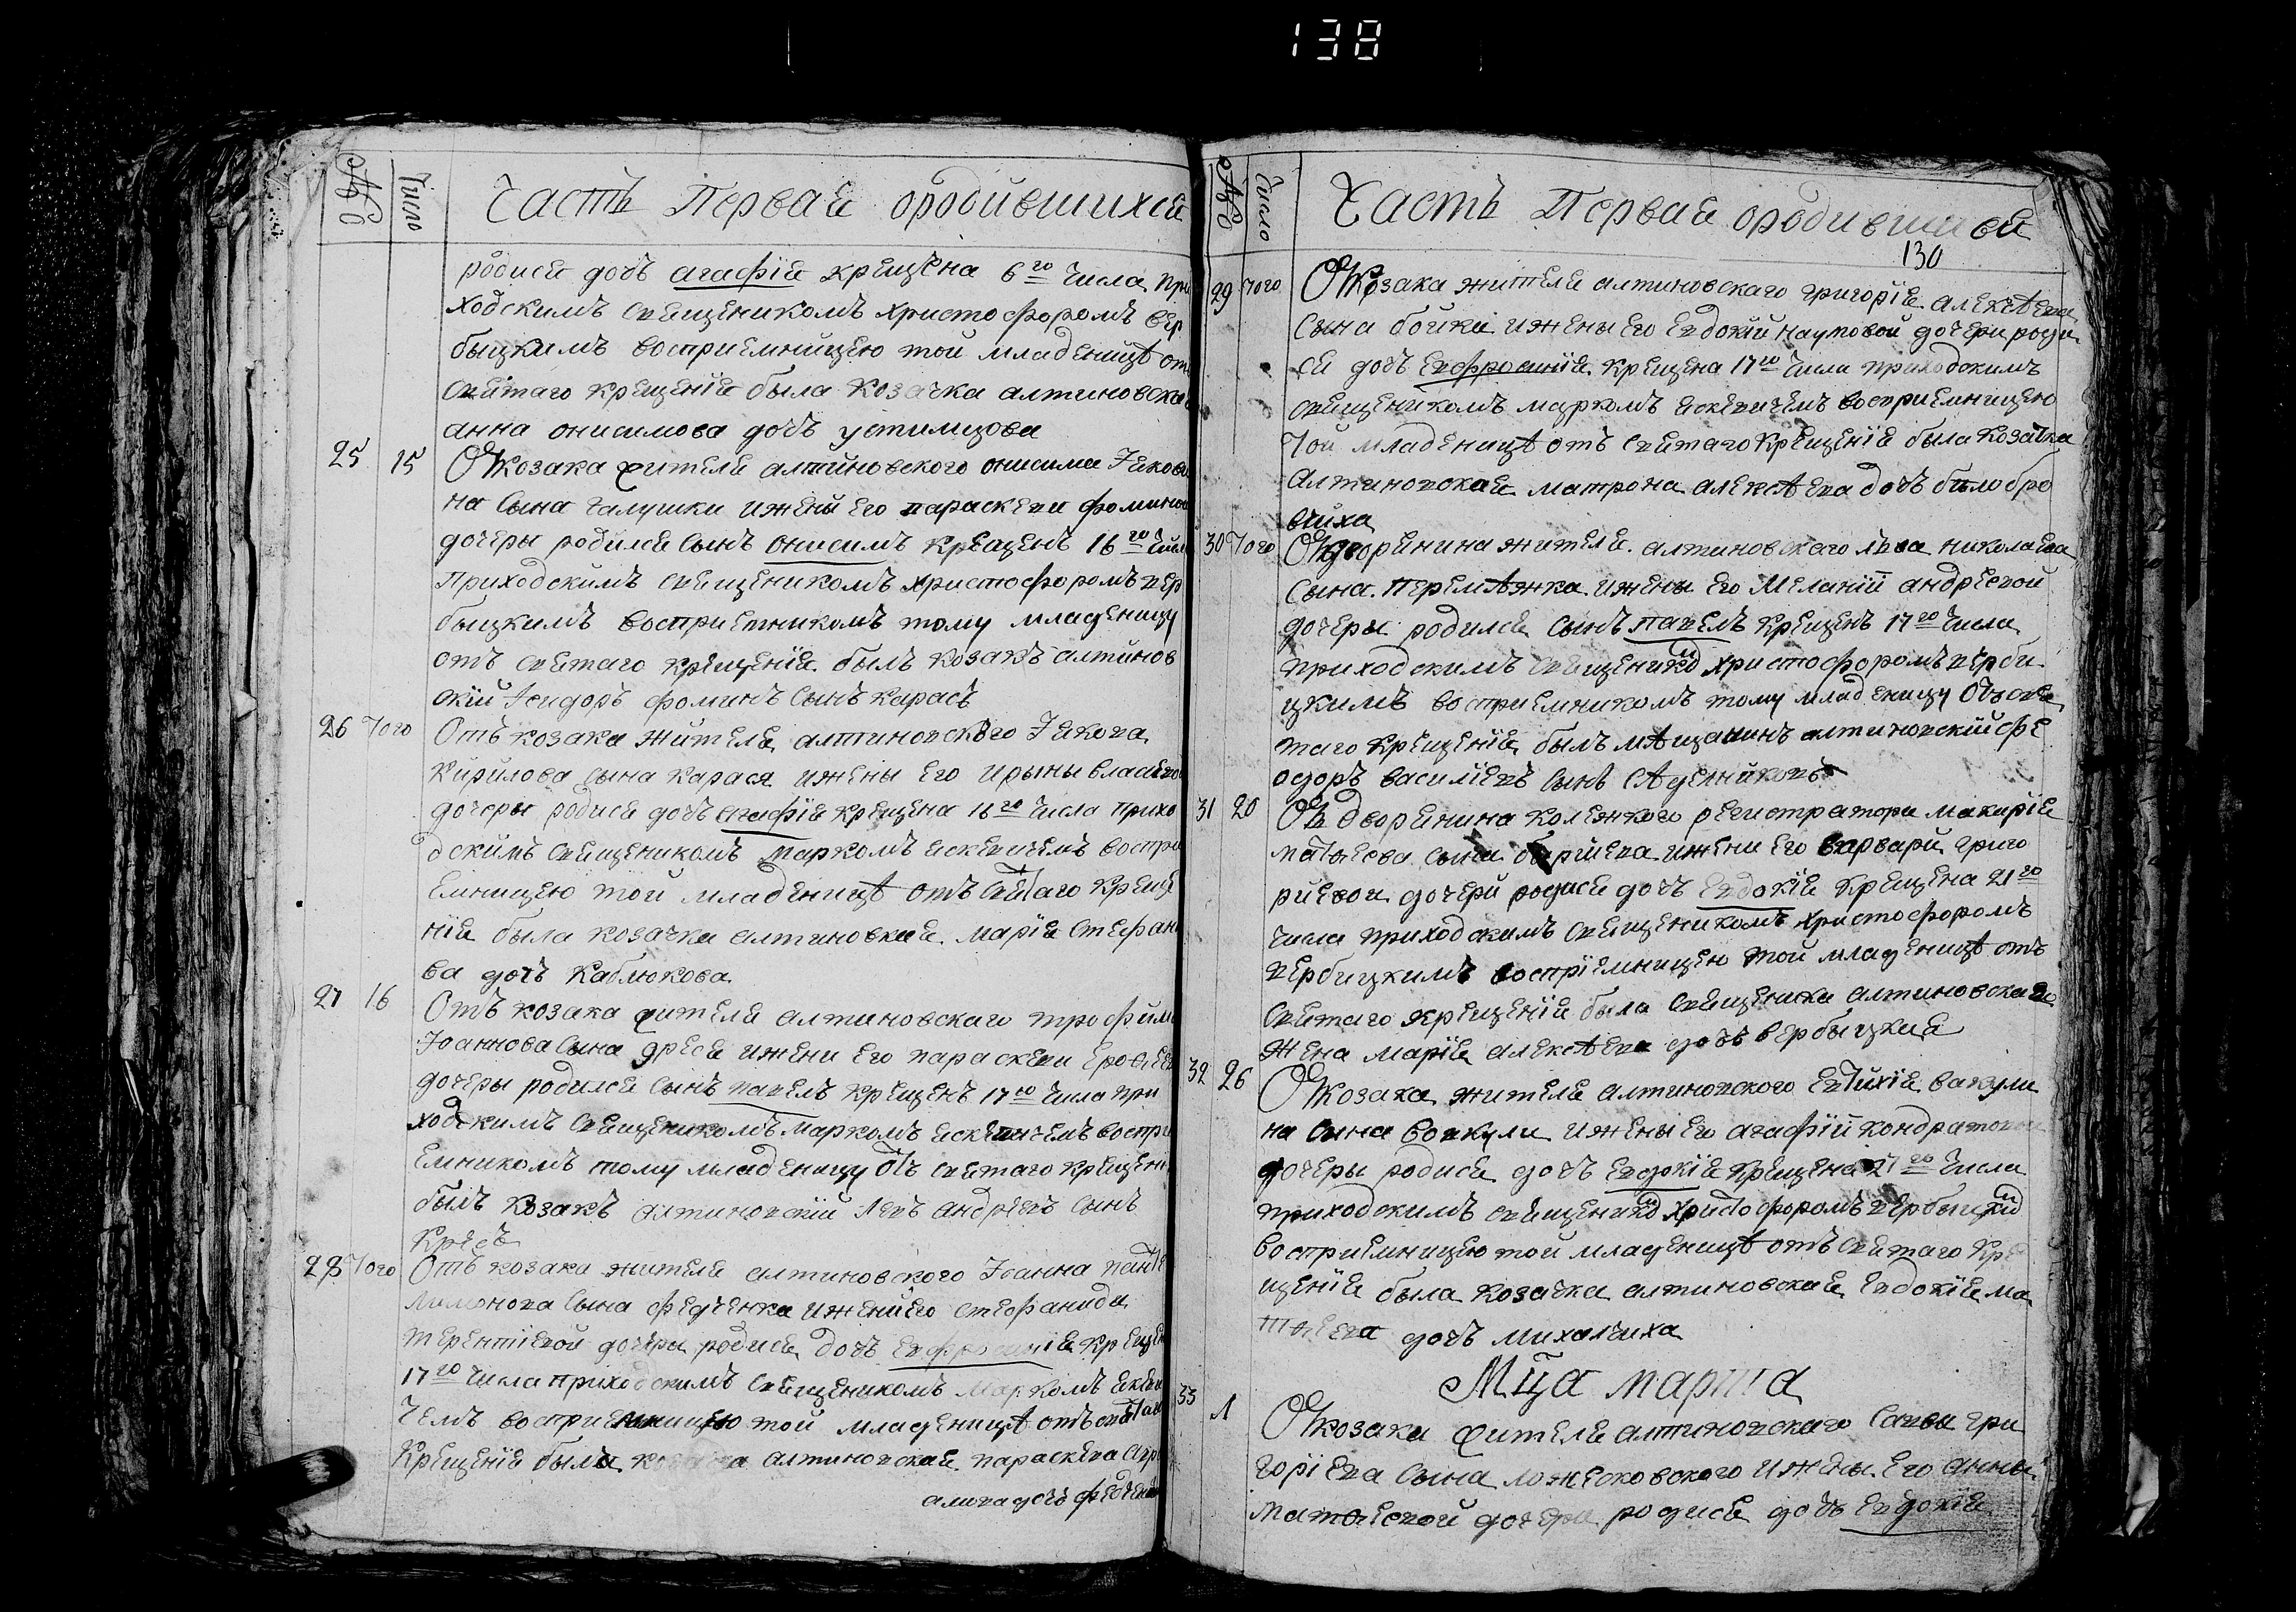 138
№ Число Часть Первая ородившихся
родися дочь агафїя крещена 6го числа при
ходскимъ священикомъ христофоромъ вер
быцкимъ восприемницею той младеницѣ от
святаго крещенїя была козачка алтиновска
анна онисимова дочь устимцова
25 15 От козака жителя алтиновского онисима Iяков
на сына галушки и жены его параскеви фомино
дочеры родился сынъ онисимъ крещенъ 16го числ
приходскимъ священикомъ христофоромъ вер
быцкимъ восприемникомъ тому младеницу
отъ святаго крещенїя былъ козакъ алтинов
скїй Iсидоръ фоминъ сынъ карась
26 того Отъ козака жителя алтиновского Iякова
кирилова сына карася и жены его ирыны власово
дочеры родися дочь агафїя крещена 16го числа прихо
дскимъ священикомъ маркомъ яскевичемъ воспри
емницею той младеницѣ отъ святаго креще
нїя была козачка алтиновкая марїя стефан
ва дочь каблюкова
27 16 Отъ козака жителя алтиновскаго трофима
Iоаннова сына дреся и жени его параскеви ерофеев
дочеры родился сынъ павелъ крещенъ 17го числа при
ходскимъ священикомъ маркомъ яскевичемъ воспри
емникомъ тому младеницу отъ святаго крещени
былъ козакъ алтиновскїй левъ андреевъ сынъ
кресъ
28 того Отъ козака жителя алтиновского Iоанна пантe
лимонова сына федченка и жени его стефаниди
терентїевой дочеры родися дочь евфросинїя крещен
17го числа приходскимъ священикомъ маркомъ яскеви
чемъ восприемницею той младеницѣ отъ святаго
крещенїя была козачка алтиновская параскева авр
амова дочь федченк
№ Число Часть Первая ородившися
130
29 того От козака жителя алтиновскаго григорїя алексѣева
сына бойка и жены его евдокїй наумовой дочери роди
ся дочь евфросинїя крещена 17го числа приходскимъ
священикомъ маркомъ яскевичемъ восприемницею
той младеницѣ отъ святаго крещенїя была козачка
алтиновская матрона алексѣева дочь билобро
вчиха
30 того От дворянина жителя алтиновскаго лва николаева
сына перемѣжка и жены его Меланїй андреевой
дочеры родился сынъ павелъ крещенъ 17го числа
приходскимъ священиком христофоромъ верби
цкимъ восприемникомъ тому младеницу отъ свя
таго крещенїя былъ мѣщанинъ алтиновскїй фе
одоръ василиевъ сынъ сѣделниковъ
31 20 От дворянина колежкого регистратора макарїя
матвеева сына и жени его варвари григо
риевой дочери родися дочь евдокїя крещена 21го
числа приходскимъ священикомъ христофоромъ
вербицкимъ воспрїемницею той младеницѣ отъ
святаго крещенїя была священика алтиновскаго
жена марїя алексѣева дочь вербыцкая
32 26 От козака жителя алтиновского евтихїя вакули
на сына вовкули и жены его агафїй кондратово
дочеры родися дочь евдокїя крещена 27го числа
приходскимъ священиком христофоромъ вербыцким
восприемницею той младеницѣ отъ святаго кре
щенїя была козачка алтиновская евдокїя ма
твеева дочь михалчиха
Мца марта
33 1 От козака жителя алтиновскаго савы гри
горїева сына можесковского и жены его анны
матвеевой дочери родися дочь евдокїя